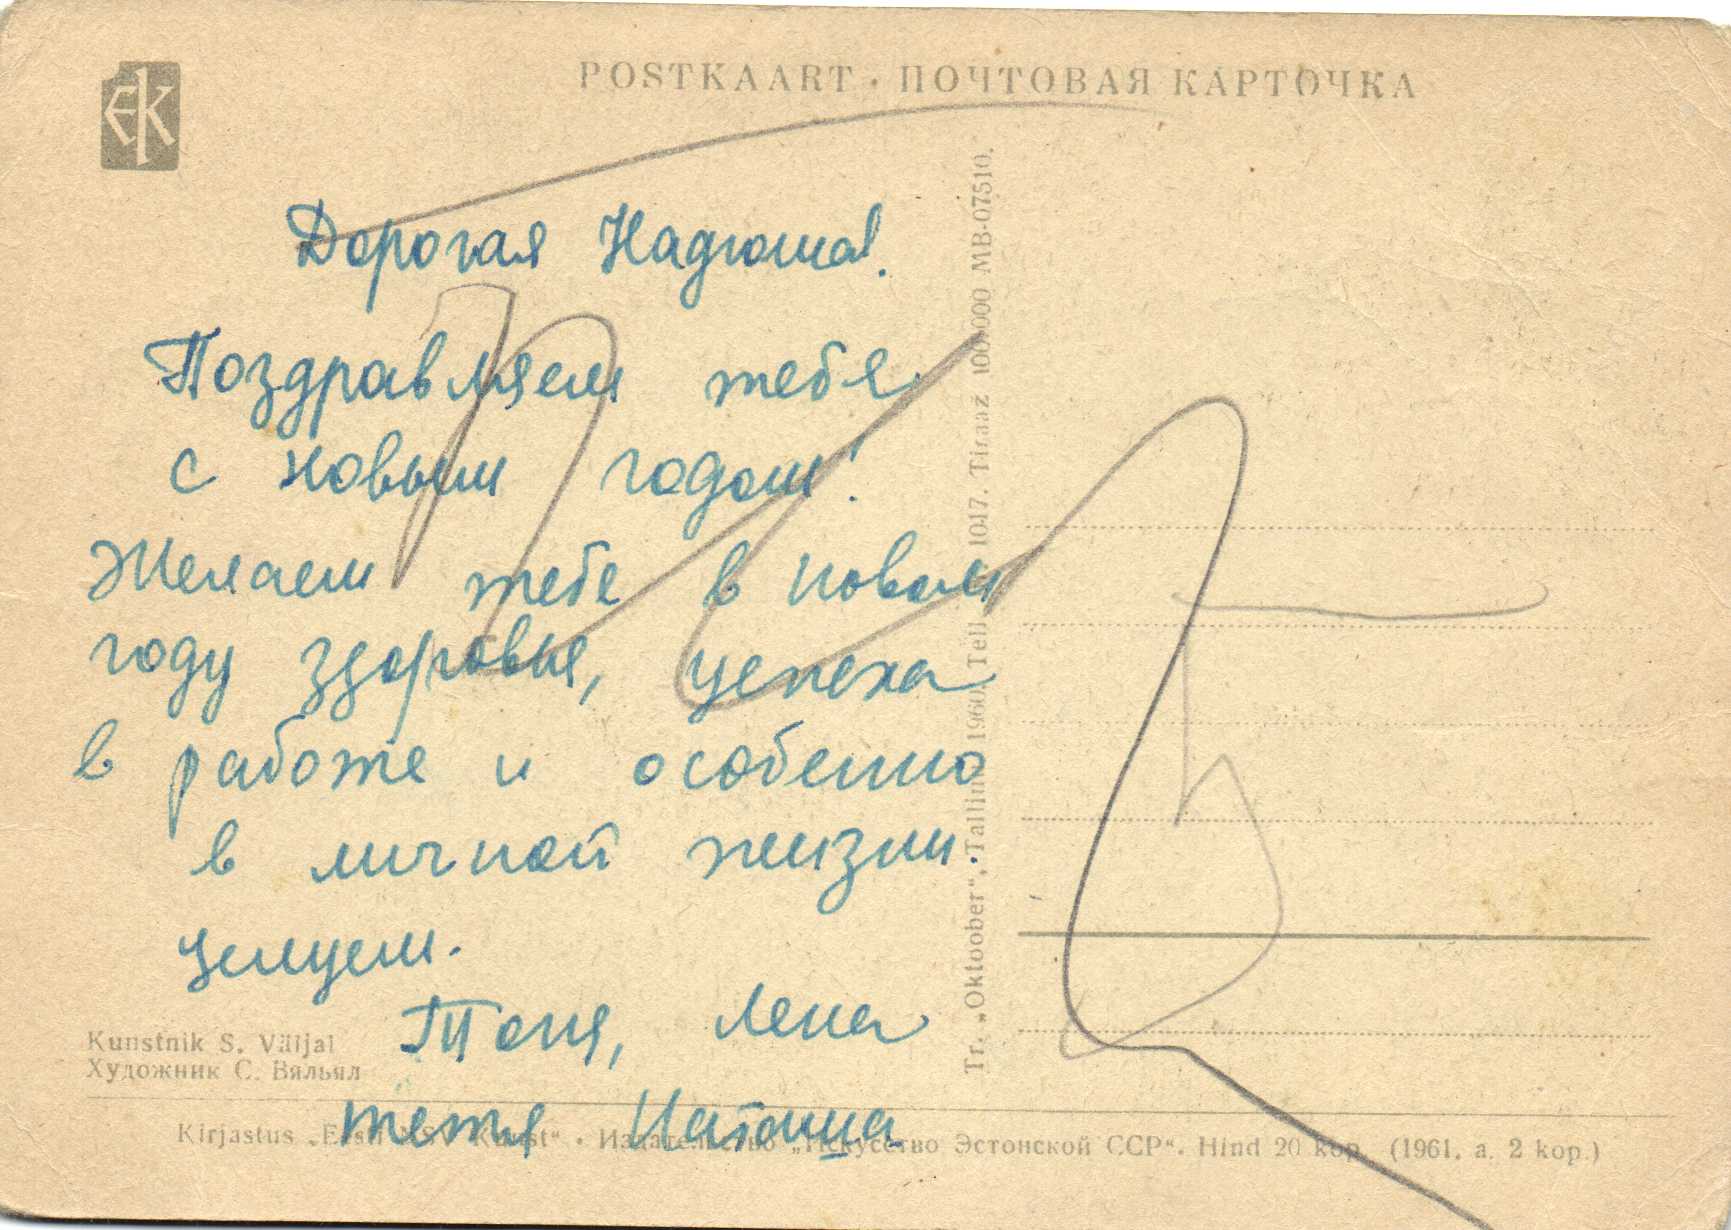 EK
POSTKAART · ПОЧТОВАЯ КАРТОЧКА
Дорогая Надюша!
Поздравляем тебя
с новым годом!
Желаем тебе в новом
году здоровья, успеха
в работе и особенно
в личной жизни.
Целуем.
Тоня, Лена
тетя Наташа
Kunstnik S. Väljal
Художник С. Вяльял
Kirjastus „Eesti NSV Kunst“ · Издательство „Искусство Эстонской ССР“. Hind 20 kop. (1961. a. 2 kop.)
Tr. „Oktoober“, Tallinn 1960. Tell. 1017. Tiraaz 100 000 MB-07510.